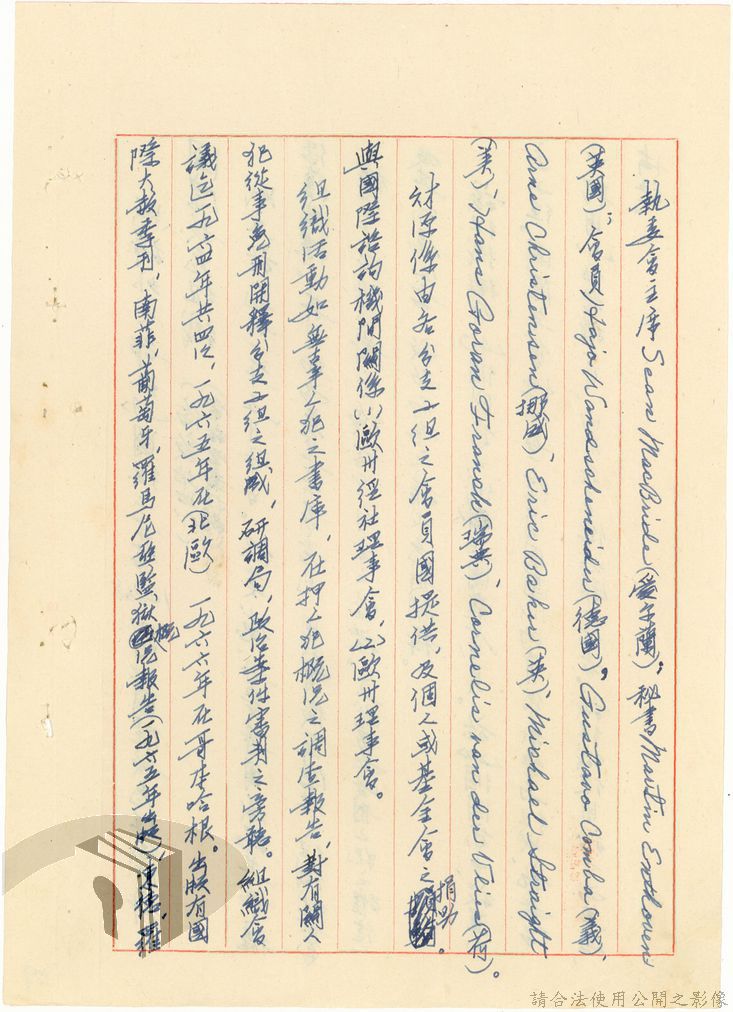 執委會主席 Sean MacBride (愛尔蘭), 秘書 Martin Enthoven
(英國), 會員 Hajo Wandschneider (德國), Gustavo Comba (義),
Arne Christensen (挪威), Eric Baker (英), Michael Straight
(美), Hans Goran Franck (瑞典), Cornelis van der Vlies (荷)。
財源係由各分支小組之會員國提供, 及個人或基金會之捐助。
與國際諮詢機關關係(1)歐卅經社理事會, (2)歐卅理事會。
組織活動如無辜人犯之書庫, 在押人犯概況之調查報告, 對有關人
犯從事免刑開釋分支小組之組成, 研調局, 政治案件審判之旁聽。組織會
議迄一九六四年共四次, 一九六五年在(北歐) 一九六六年在哥本哈根。出版有國
際大赦季刊, 南菲, 葡萄牙, 羅馬尼亞監獄概況報告(一九六五年出版), 東德, 羅
請合法使用公開之影像